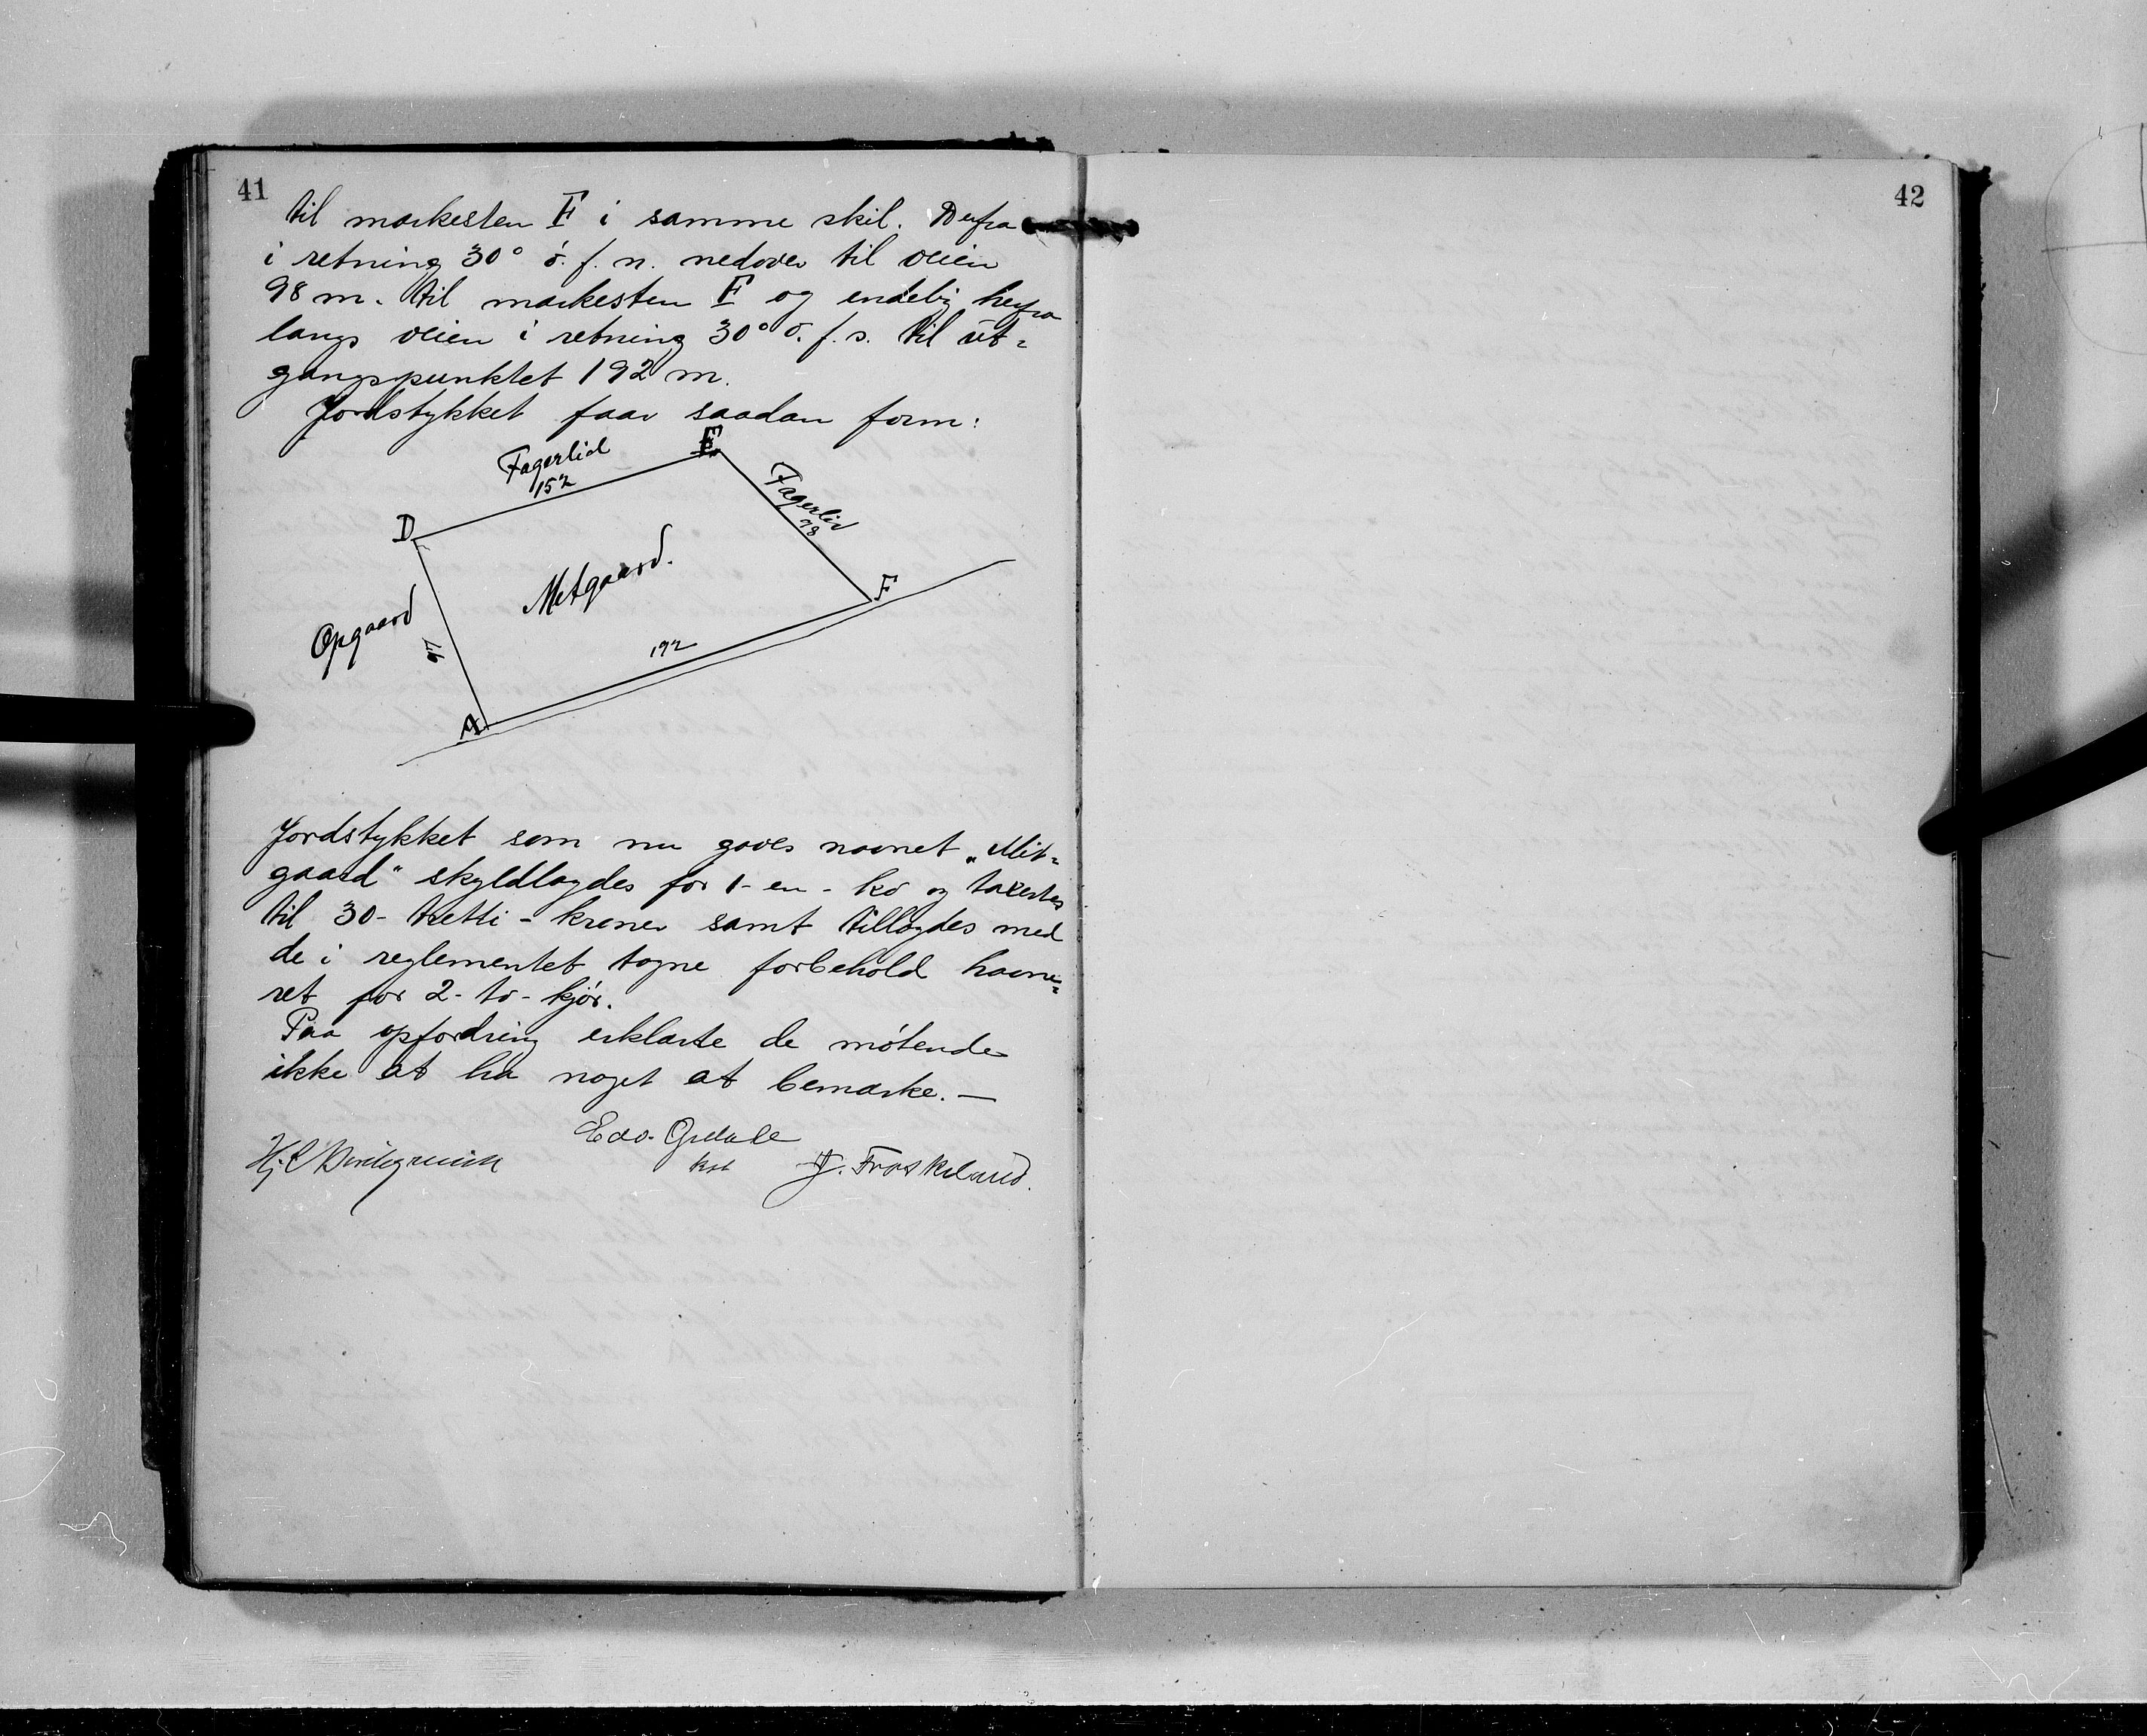 41
42
til markesten E i samme skil. Derfra
i retning 30° ö. f. n. nedover til veien
98 m. til markesten F og endelig herfra
langs veien i retning 30° ö. f. s. til ut=
gangspunktet 192 m.
Jordstykket faar saadan form:
E
Fagerlid
152
Fagerlid
98
D
Mitgaard.
F
Opgaard
97
192
A
Jordstykket som nu gaves navnet „Mit=
gaard" skyldlagdes for 1- en - kö og taxertes
til 30- tretti - kroner samt tillagdes med
de i reglementet tagne forbehold havne=
ret for 2- to- kjör.
Paa opfordring erklærte de mötende
ikke at ha noget at bemærke. —
Edv.
Hj. C
J. Froskeland.